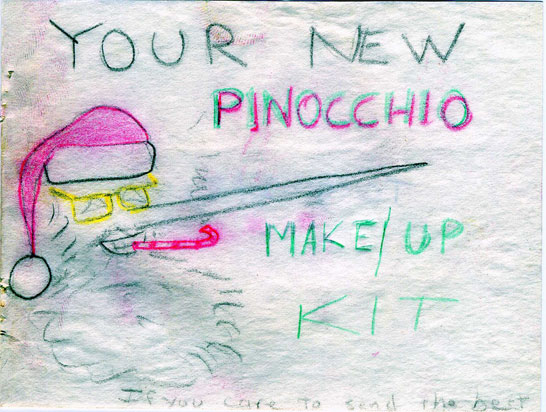 YOUR NEW
PINOCCHIO
MAKE/UP
KIT
If you care to send the best